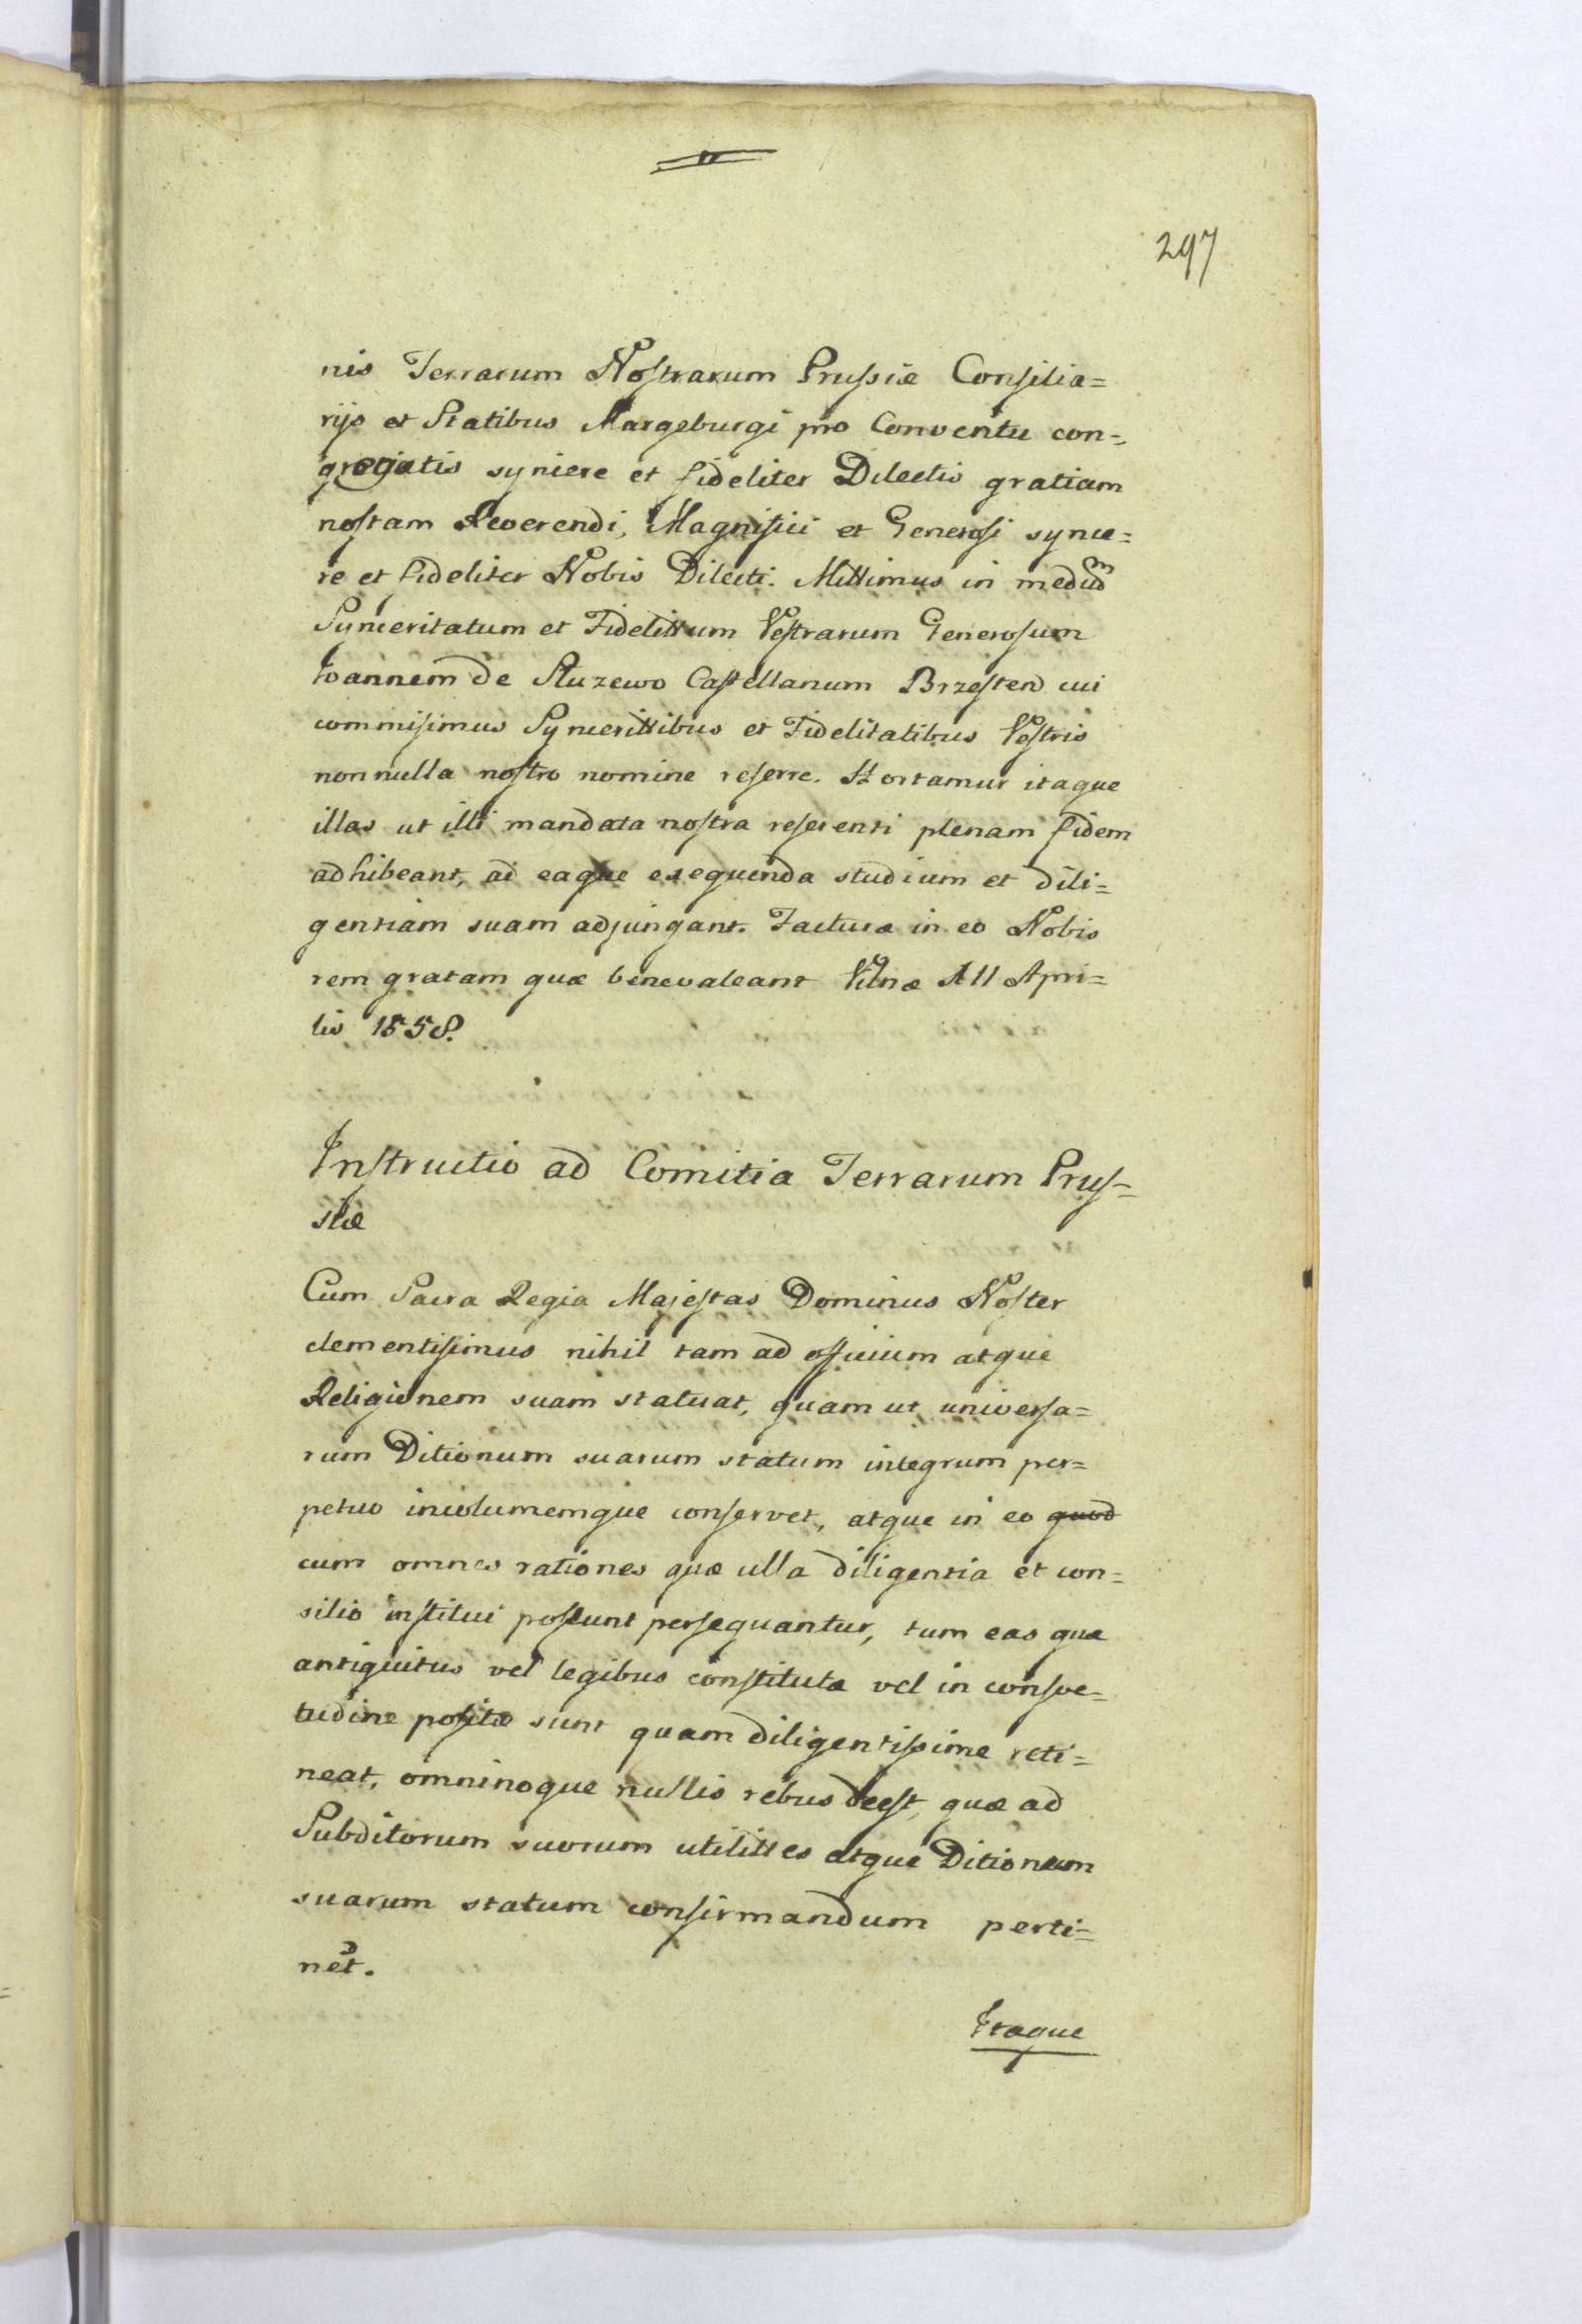 297
nis Terrarum Nostrarum Prussiæ Consilia=
rijs et Statibus Margeburgi pro Conventu con=
gregatis syncere et fideliter Dilectis gratiam
nostam Reverendi, Magnifici et Generosi synce=
re et fideliter Nobis Dilecti. Mittimus in medium
Synceritatum et Fidelittum Vestrarum Generosum
Joannem de Sluzewo Castellanum Brzesten cui
commisimus Syncerittibus et Fidelitatibus Vestris
nonnulla nostro nomine referre. Hortamur itaque
illas ut illi mandata nostra referenti plenam fidem
adhibeant, ad eaque exequenda studium et dili=
gentiam suam adjungant. Facturæ in eo Nobis
rem gratam quæ benevaleant Vilnæ All Apri=
lis 1558.
Instructio ad Comitia Terrarum Prus=
siæ
Cum Sacra Regia Majestas Dominus Noster
clementisimus nihil tam ad officium atque
Religionem suam statuat, quam ut universa=
rum Ditionum suarum statum integrum per=
petuo incolumemque conservet, atque in eo quod
cum omnes rationes quæ ulla diligentia et con=
silio institui possunt persequantur, tum eas quæ
antiquitus vel legibus constitutæ vel in consve=
tudine positæ sunt quam diligentissime reti=
neat, omninoque nullis rebus deest, quæ ad
Subditorum suorum utilittes atque Ditionum
suarum statum confirmandum perti=
net.
Itaque